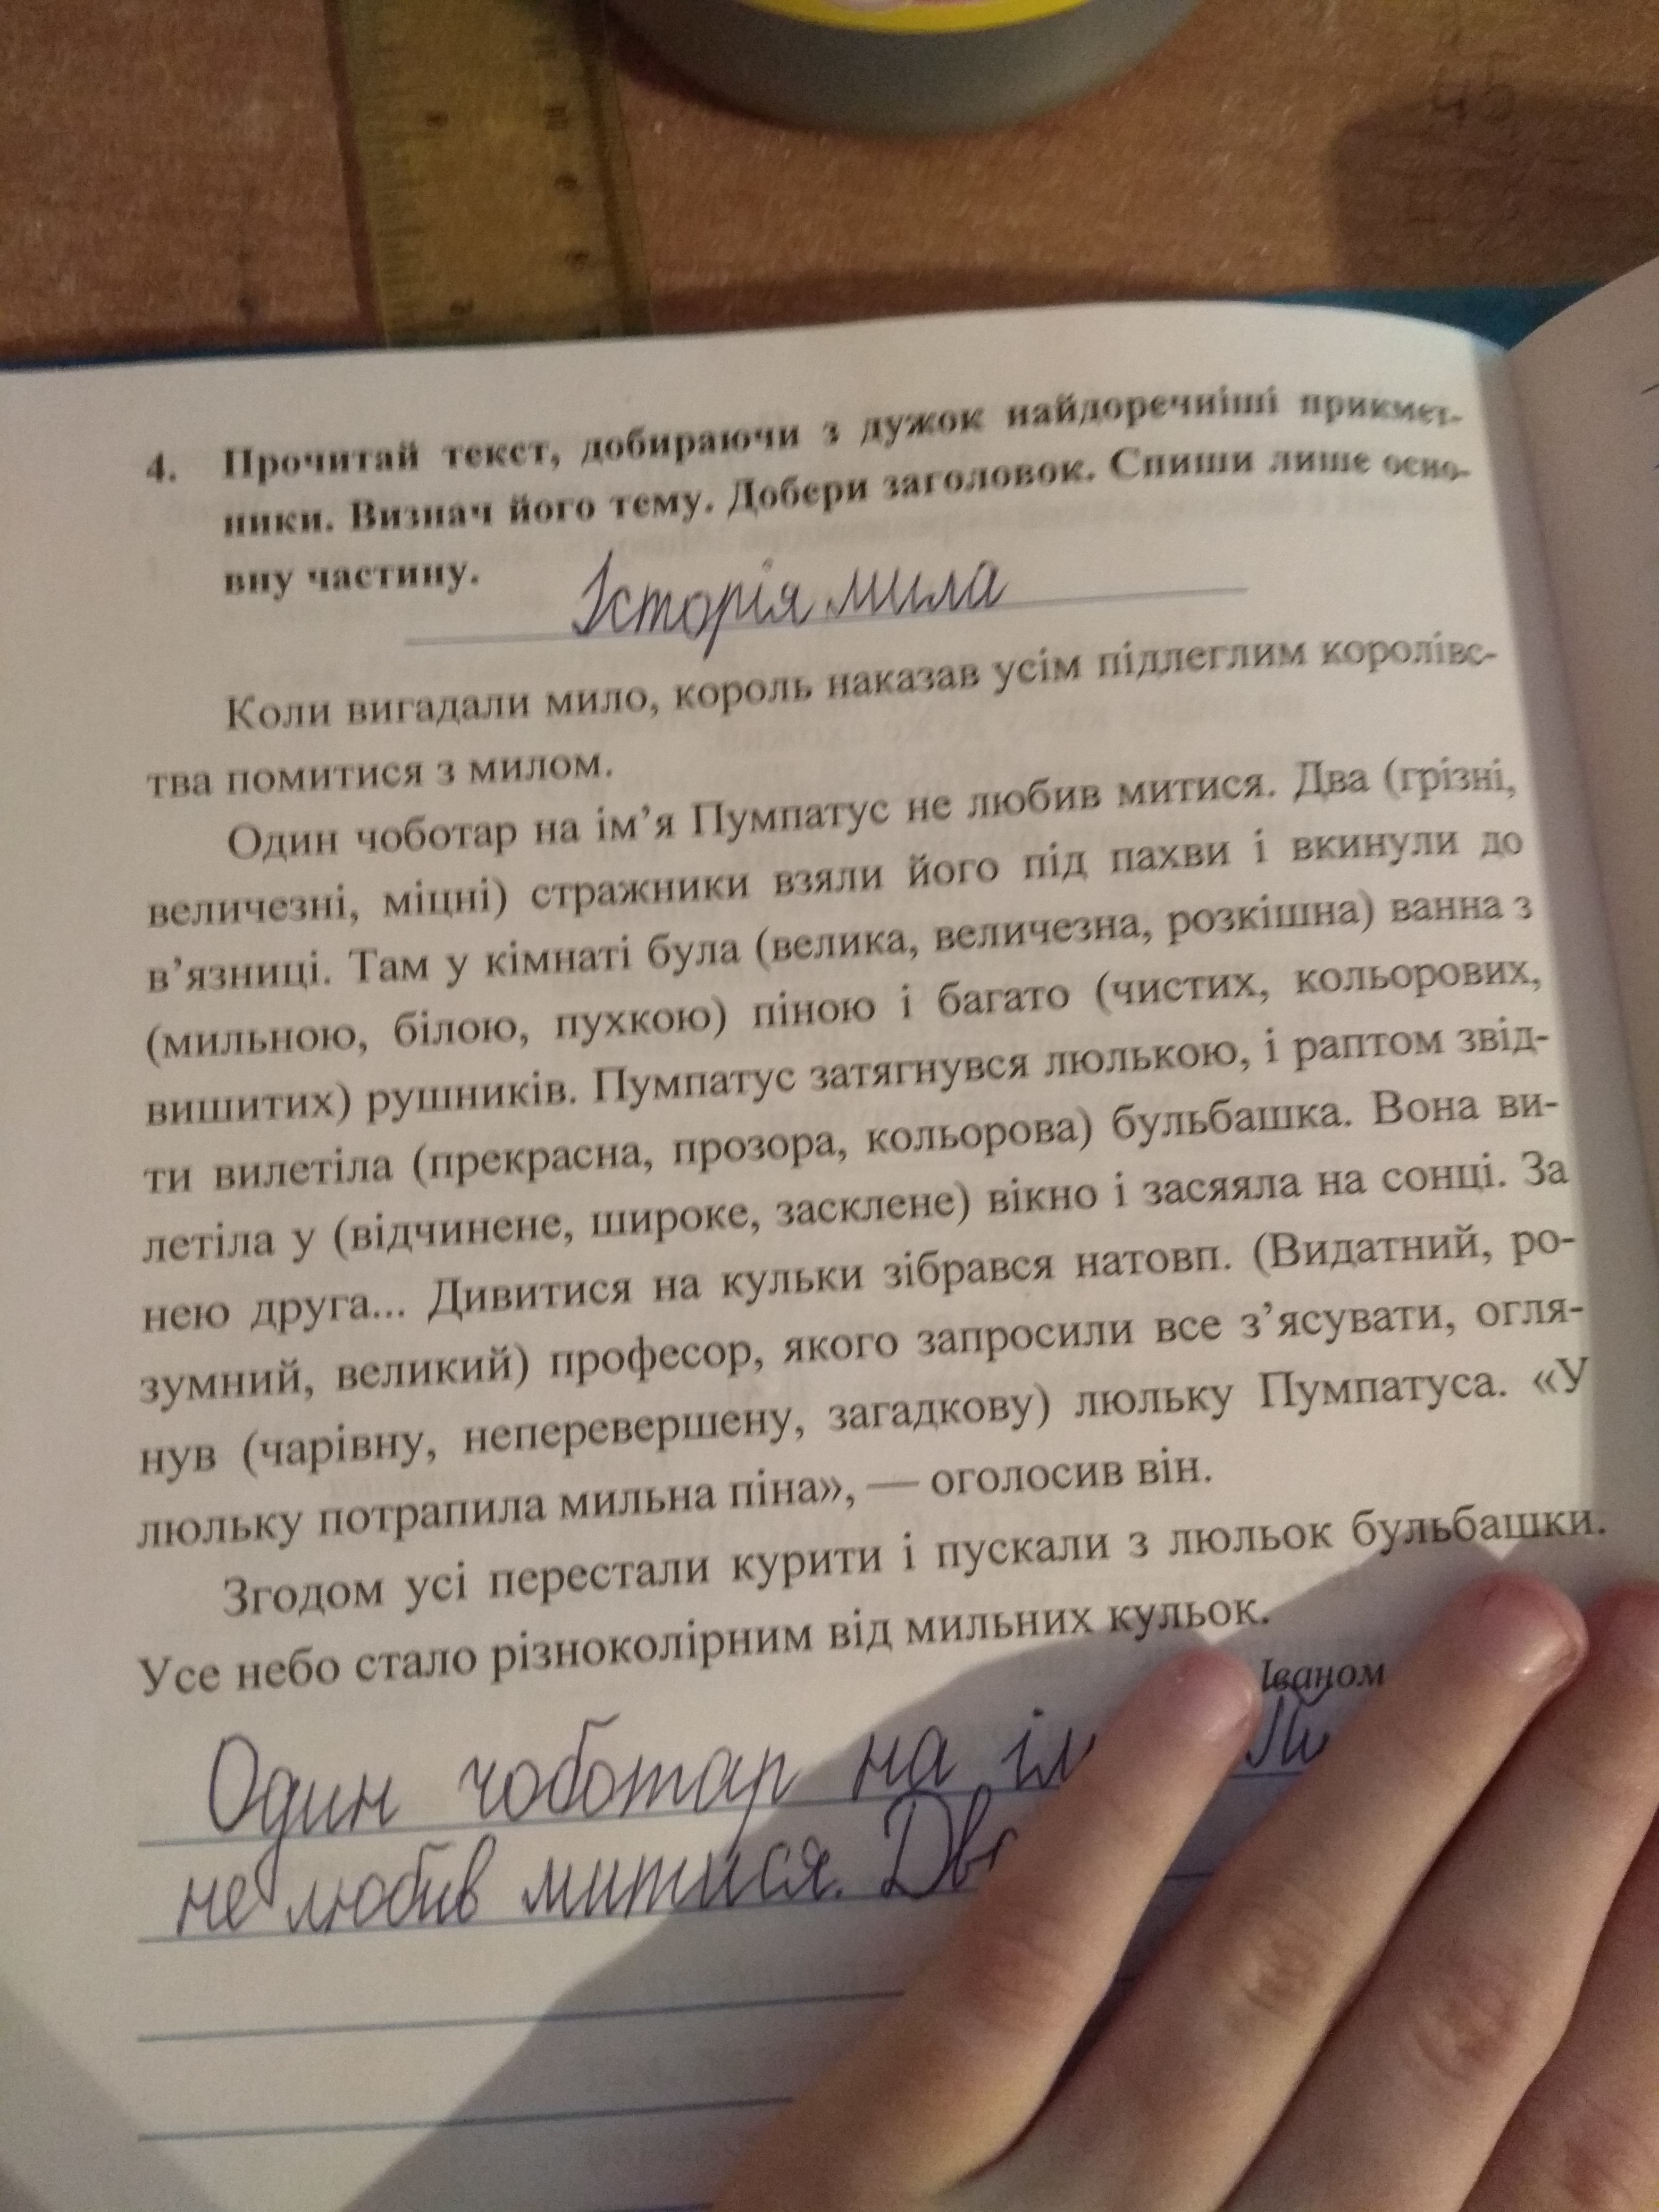 4. Прочитай текст, добираючи з дужок найдоречніші прикмет-
ники. Визнач його тему. Добери заголовок. Спиши лише осно-
вну частину.
Історія мила
Коли вигадали мило, король наказав усім підлеглим королівс-
тва помитися з милом.
Один чоботар на ім’я Пумпатус не любив митися. Два (грізні,
величезні, міцні) стражники взяли його під пахви і вкинули до
в’язниці. Там у кімнаті була (велика, величезна, розкішна) ванна з
(мильною, білою, пухкою) піною і багато (чистих, кольорових,
вишитих) рушників. Пумпатус затягнувся люлькою, і раптом звід-
ти вилетіла (прекрасна, прозора, кольорова) бульбашка. Вона ви-
летіла у (відчинене, широке, засклене) вікно і засяяла на сонці. За
нею друга... Дивитися на кульки зібрався натовп. (Видатний, ро-
зумний, великий) професор, якого запросили все з’ясувати, огля-
нув (чарівну, неперевершену, загадкову) люльку Пумпатуса. «У
люльку потрапила мильна піна», — оголосив він.
Згодом усі перестали курити і пускали з люльок бульбашки.
Усе небо стало різноколірним від мильних кульок.
Іваном
Один чоботар на
не любив митися.